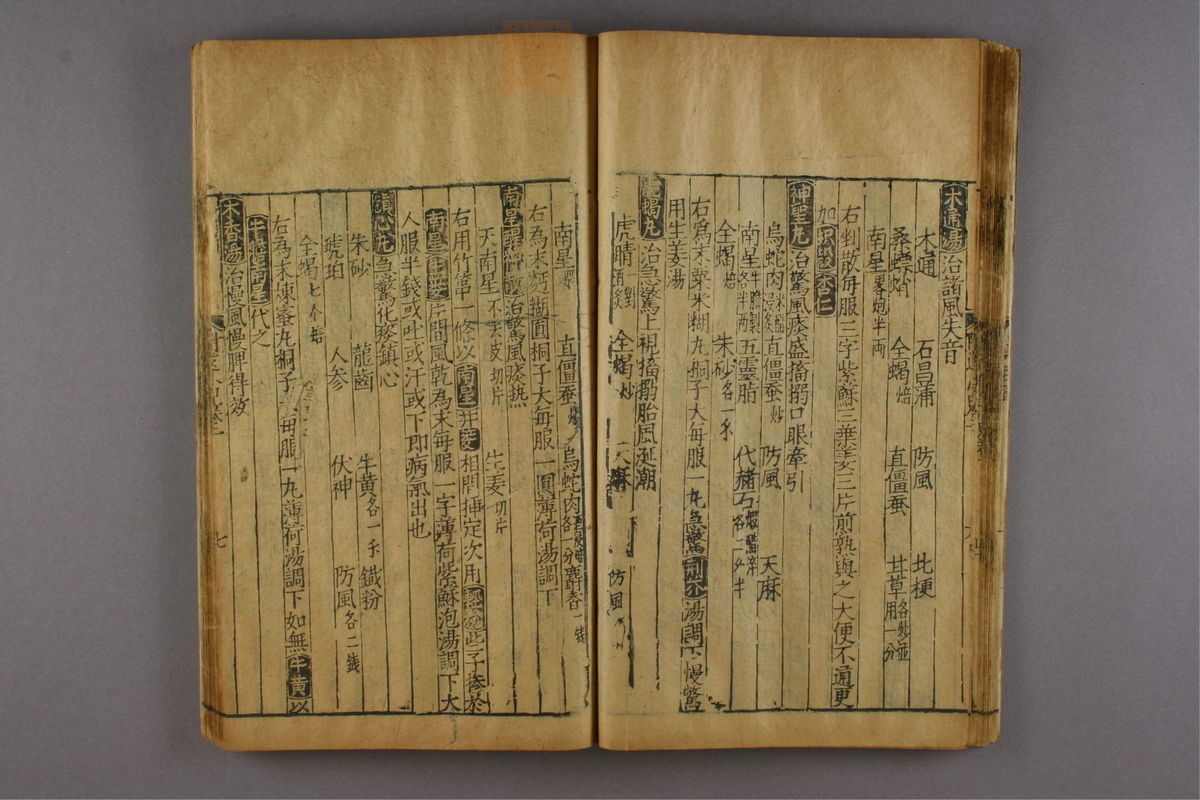 木通湯治諸風失音
木通 石昌蒲 防風 北梗
桑螵蛸 全蝎焙 直僵蚕 甘草各炒並用一分
南星畧炮半両
右剉散毎服三字紫蘇三葉姜三片煎熟與之大便不通更
加杏仁
神聖丸治驚風痰盛搐搦口眼牽引
烏蛇肉 直僵蚕炒 防風 天麻
南星牛膽製各半両 五靈脂 代赭石
全蝎焙 朱砂各一
右爲末粟米糊丸桐子大毎服一丸急驚荊芥湯調下慢驚
用生姜湯
蝎丸治急驚上視搐搦胎風涎潮
虎睛 全蝎炒 天麻 防風
南星 直僵蚕 烏蛇肉各一分 麝香一錢
右為末麪糊圓桐子大毎服一圓薄荷湯調下
南星治驚風痰熱
天南星不去皮切片 生姜切片
右用竹第一條以南星并姜相間挿定次用些子摻於
南星生姜片間風乾為末毎服一字薄荷紫蘇泡湯調下大
人服半錢或吐或汗或下即病氣出也
鎮心丸急驚化痰鎮心
朱砂 龍齒 牛黄各一 鐡粉
琥珀 人参 伏神 防風各二錢
全蝎七个焙
右為末煉蜜丸桐子大毎服一丸薄荷湯調下如無牛黄以
牛膽南星代之
木香湯治慢風慢脾得效
七